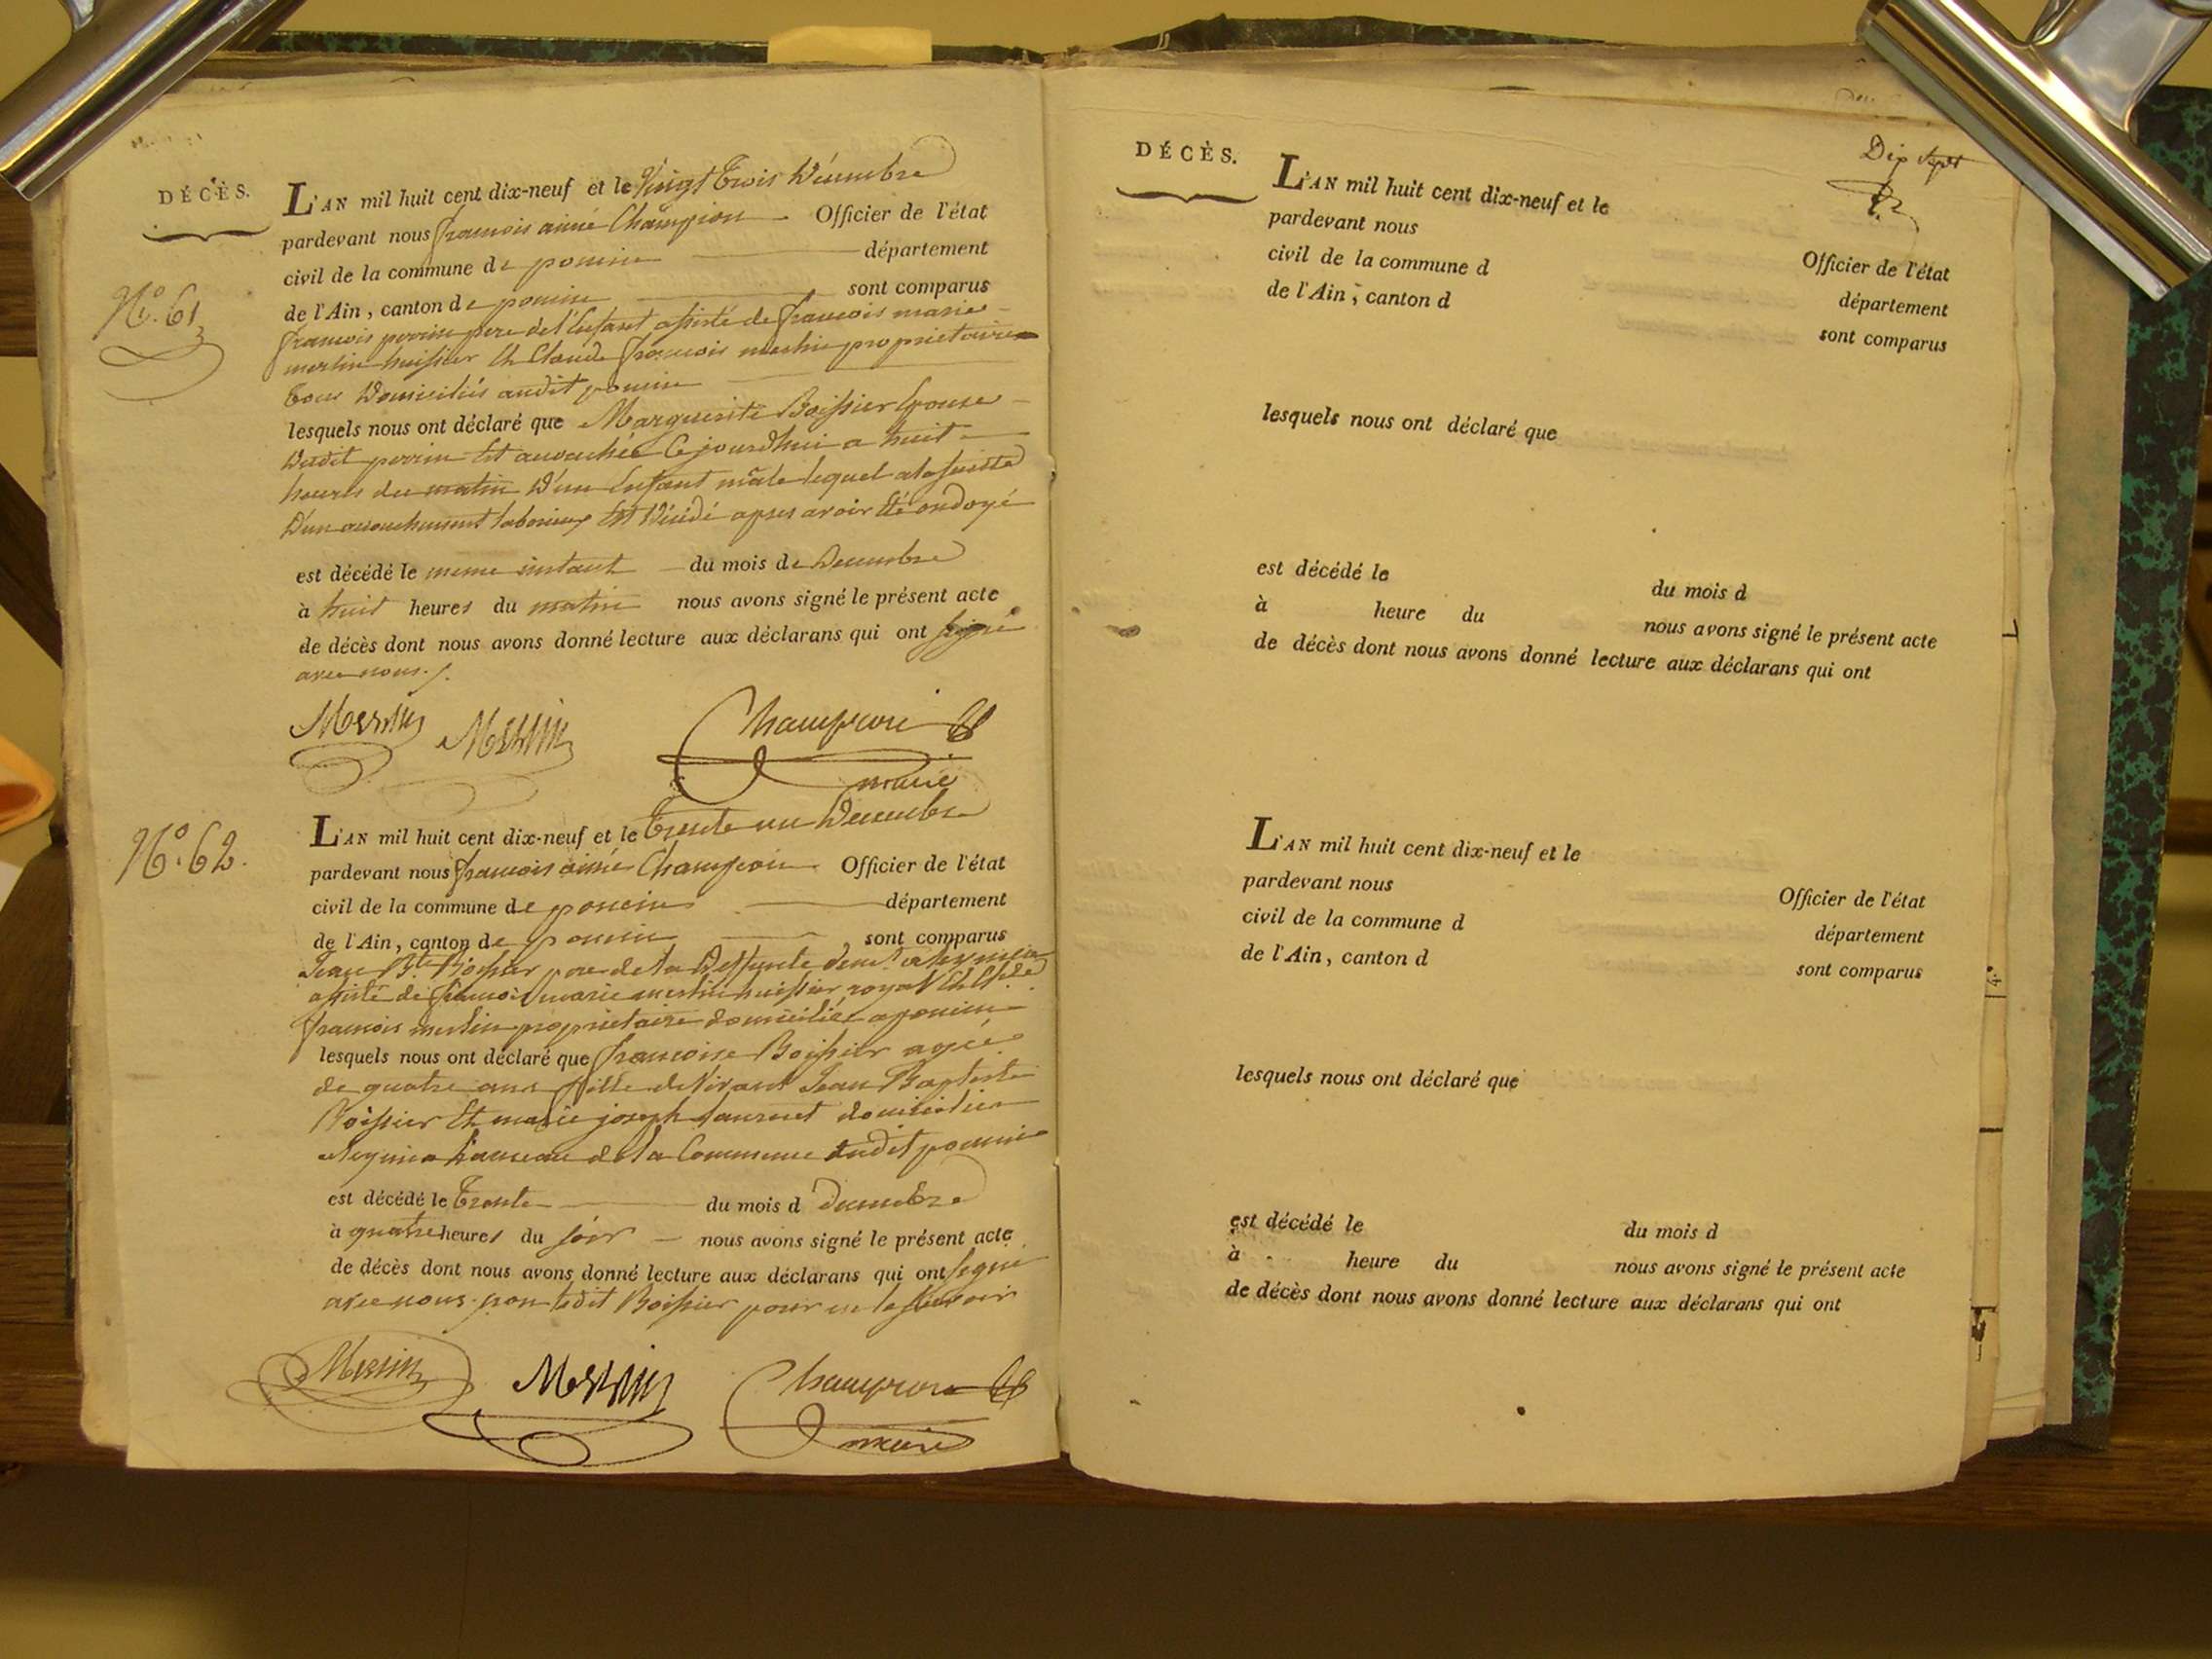 DÉCÈS.
L'AN mil huit cent dix-neuf et le Vingt trois Décembre
pardevant nous françois aimé Champion Officier de l'état
civil de la commune de poncin département
de l'Ain, canton de poncin sont comparus
N.º 61
françois perrin pere de l'Enfant assisté de françois marie
merlin huissier Et Claude françois merlin proprietaire
tous Domiciliés audit poncin
lesquels nous ont déclaré que Marguerite Boissier Epouse
dudit perrin Est accouchée Cejourdhui a huit
heures du matin D'un Enfant mâle lequel a la suitte
D'un accouchement laborieux Est Décédé apres avoir Eté ondoyé
est décédé le meme instant du mois de Decembre
à huit heures du matin nous avons signé le présent acte
de décès dont nous avons donné lecture aux déclarans qui ont signé
avec nous.
Merlin Merlin Champion
maire
N.º 62.
L'AN mil huit cent dix-neuf et le Trente un Decembre
pardevant nous françois aimé Champion Officier de l'état
civil de la commune de poncin département
de l'Ain, canton de poncin sont comparus
Jean B.te Boissier pere de la Deffunte demt. a
assisté de françois marie merlin huissier royal Et Cl.de
françois merlin proprietaire domiciliés a poncin
lesquels nous ont déclaré que françoise Boissier agée
de quatre ans fille de Vivant Jean Baptiste
Boissier Et marie joseph domiciliés
hameau de la Commune dudit poncin
est décédé le Trente du mois d Decembre
à quatre heures du soir nous avons signé le présent acte
de décès dont nous avons donné lecture aux déclarans qui ont signé
avec nous non ledit Boissier pour ne le scavoir
Merlin Merlin Champion
maire
Dix sept
DÉCÈS.
L'AN mil huit cent dix-neuf et le
pardevant nous Officier de l'état
civil de la commune d département
de l'Ain, canton d sont comparus
lesquels nous ont déclaré que
est décédé le du mois d
à heure du nous avons signé le présent acte
de décès dont nous avons donné lecture aux déclarans qui ont
L'AN mil huit cent dix-neuf et le
pardevant nous Officier de l'état
civil de la commune d département
de l'Ain, canton d sont comparus
lesquels nous ont déclaré que
est décédé le du mois d
à heure du nous avons signé le présent acte
de décès dont nous avons donné lecture aux déclarans qui ont